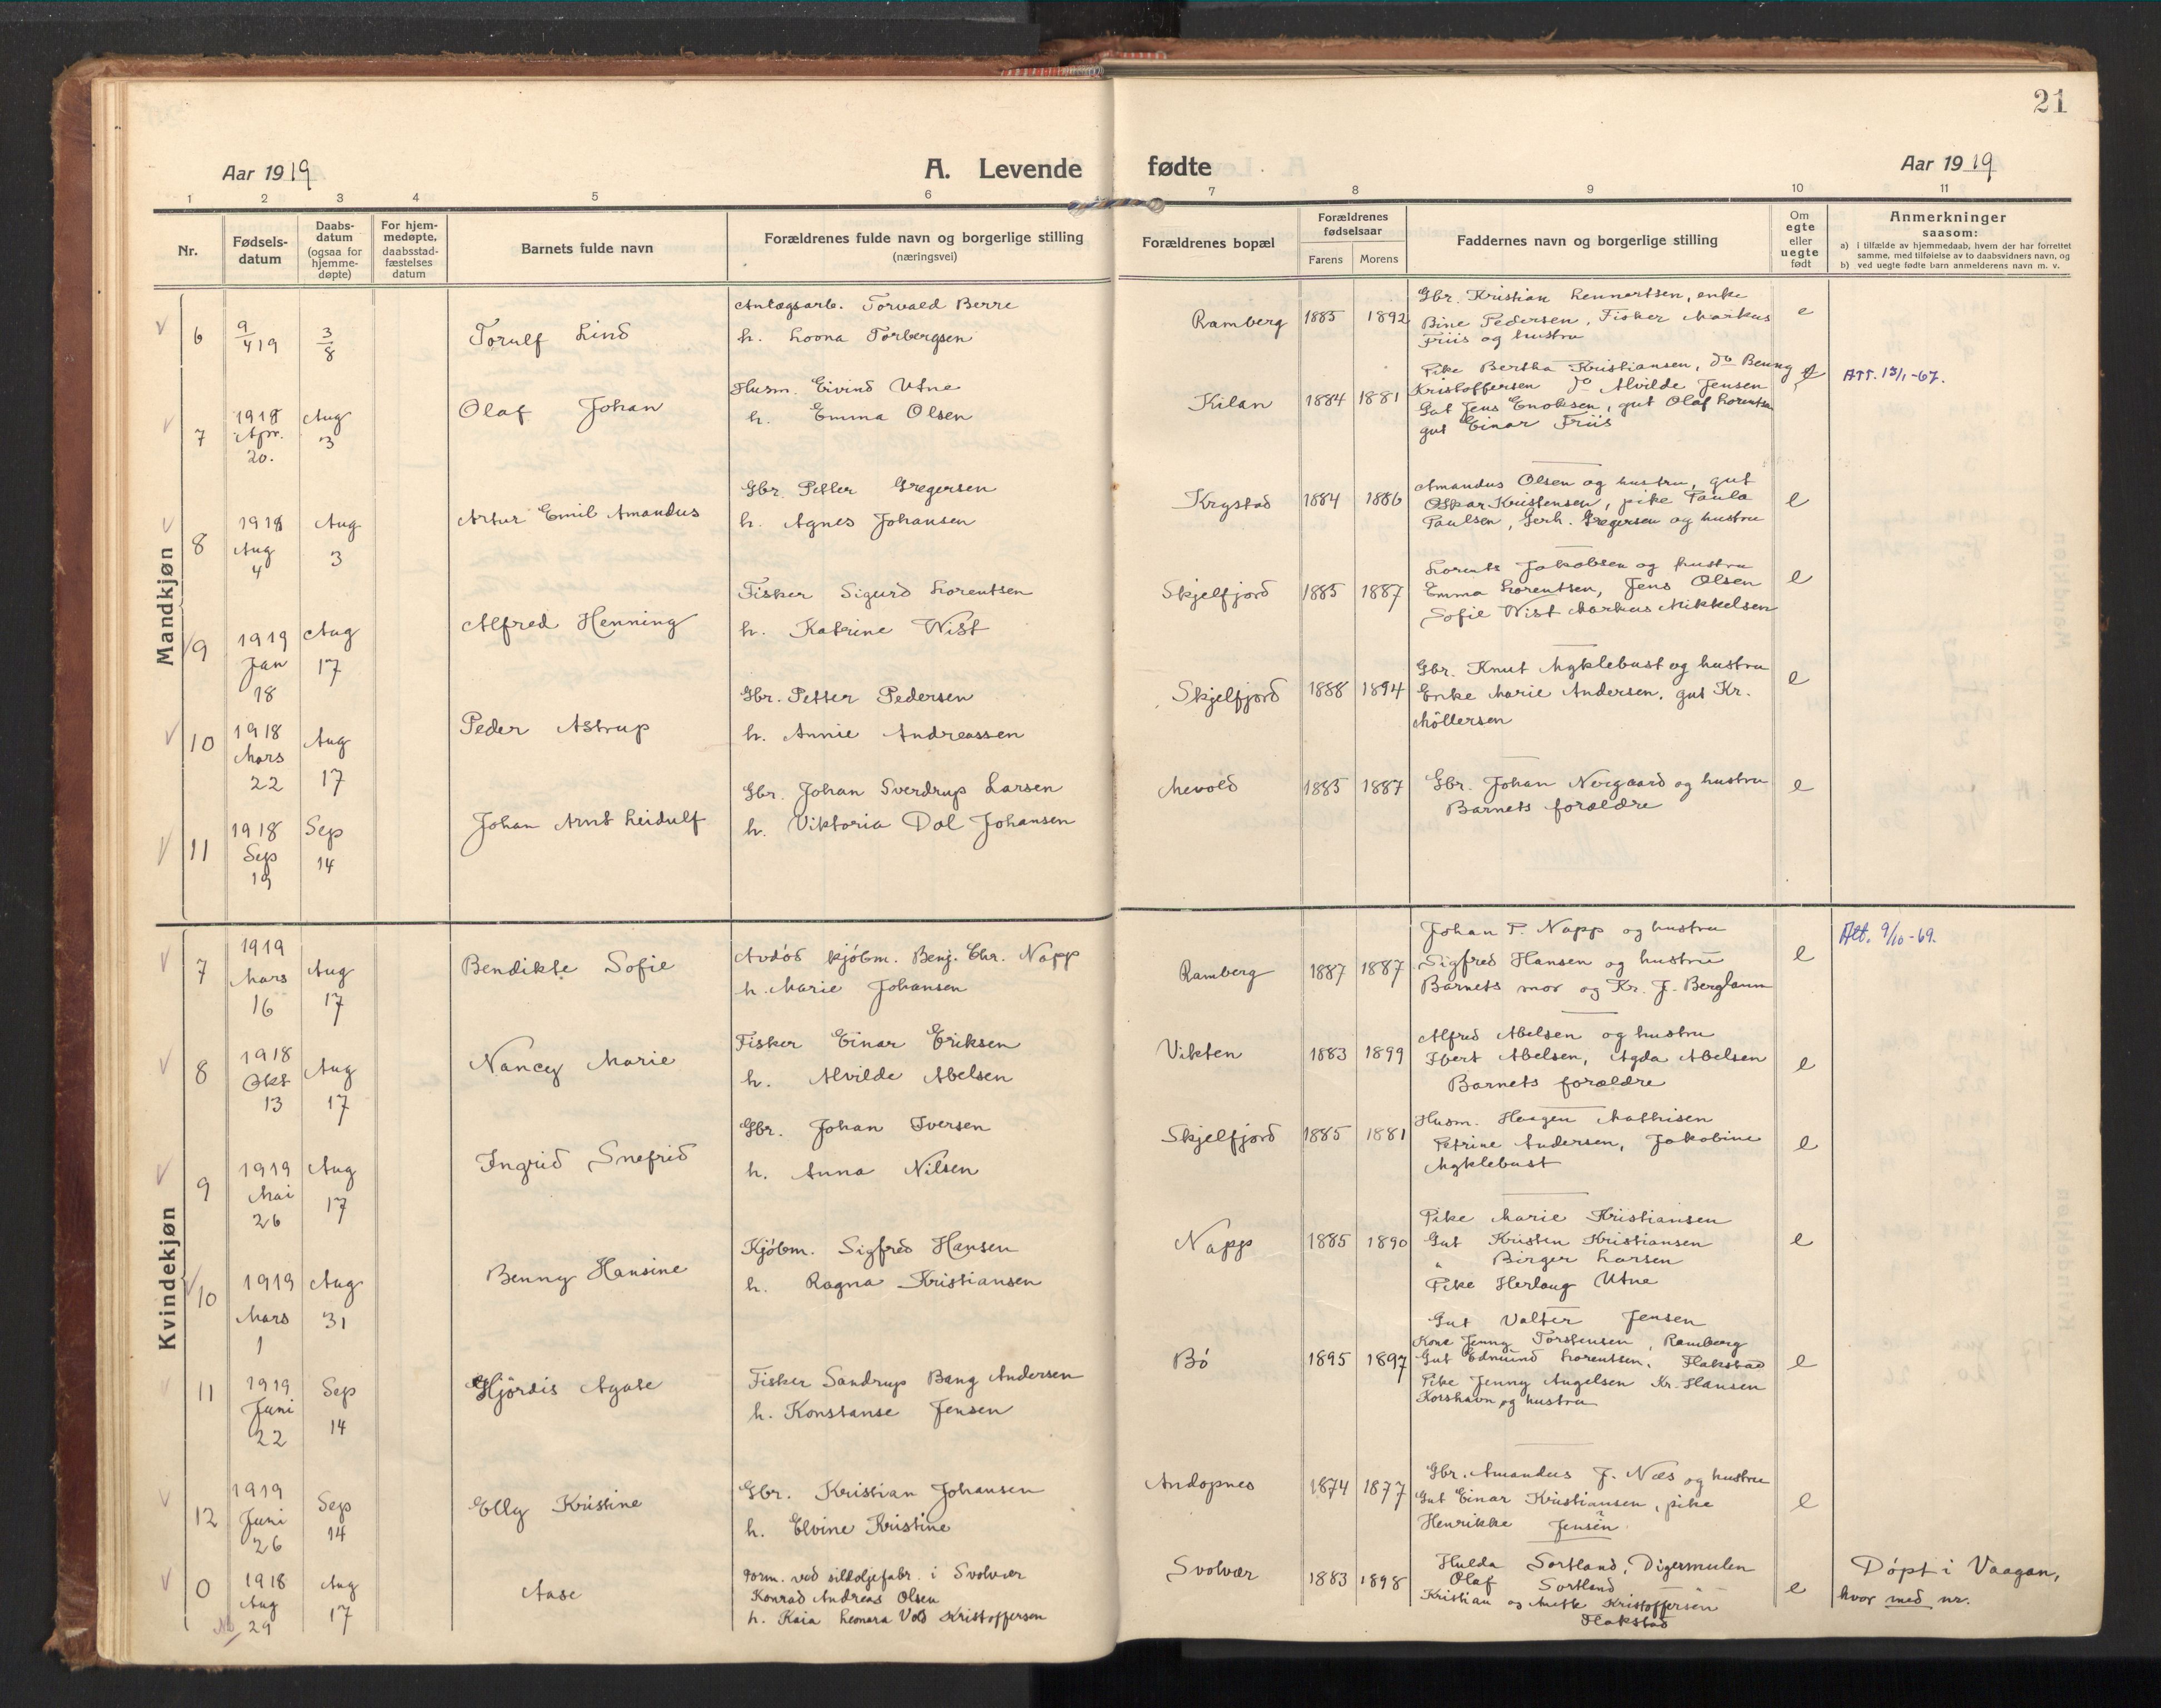 21
Aar 1919
A. Levende fødte
Aar 1919
1 2 3 4 5 6 7 8 9 10 11
Nr.
Fødsels-
datum
Daabs-
datum
(ogsaa for
hjemme-
døpte)
For hjem-
medøpte,
daabsstad-
fæstelses
datum
Barnets fulde navn
Forældrenes fulde navn og borgerlige stilling
(næringsvei)
Forældrenes bopæl
Forældrenes
fødselsaar
Farens Morens
Faddernes navn og borgerlige stilling
Om
egte
eller
uegte
født
Anmerkninger
saasom:
a) i tilfælde av hjemmedaab, hvem der har forrettet
samme, med tilføielse av to daabsvidners navn, og
b) ved uegte fødte barn anmelderens navn m. v.
Mandkjøn
6
9/4 19
3/8
Torulf Lind
Anlægsarb. Torvald Berre
h. Loona Torbergsen
Ramberg
1885 1892
Gbr. Kristian Lennartsen, enke
Bine Pedersen, Fisker Markus
Friis og hustru
e
7
1918
Apr.
20.
Aug
3
Olaf Johan
Husm. Eivind Utne
h. Emma Olsen
Kilan
1884 1881
Pike Bertha Kristiansen, do Benny
Kristoffersen do Alvilde Jensen
Gut Jens Enoksen, gut Olaf Lorentsen
gut Einar Friis
e
Att. 13/1-67.
8
1918
Aug
4
Aug
3
Artur Emil Amandus
Gbr. Petter Gregersen
h. Agnes Johansen
Krystad
1884 1886
Amandus Olsen og hustru, gut
Oskar Kristensen, pike Paula
Paulsen, Gerh. Gregersen og hustru
e
9
1919
Jan
18
Aug
17
Alfred Henning
Fisker Sigurd Lorentsen
h. Katrine Wist
Skjelfjord
1885 1887
Lorents Jakobsen og hustru
Emma Lorentsen, Jens Olsen
Sofie Wist Markus Mikkelsen
e
10
1918
Mars
22
Aug
17
Peder Astrup
Gbr. Petter Pedersen
h. Annie Andreassen
Skjelfjord
1888 1894
Gbr. Knut Myklebust og hustru
Enke Marie Andersen, gut Kr.
Möllersen
e
11
1918
Sep
19
Sep
14
Johan Arnt Leidulf
Gbr. Johan Sverdrup Larsen
h. Viktoria Dal Johansen
Mevold
1883 1887
Gbr. Johan Norgaard og hustru
Barnets forældre
e
Kvindekjøn
7
1919
Mars
16
Aug
17
Bendikte Sofie
Avdöd kjöbm. Benj. Chr. Napp
h. Marie Johansen
Ramberg
1887 1887
Johan P. Napp og hustru
Sigfred Hansen og hustru
Barnets mor og Kr. J. Berglann
e
Att. 9/10-69.
8
1918
Okt
13
Aug
17
Nancy Marie
Fisker Einar Eriksen
h. Alvilde Abelsen
Vikten
1883 1899
Alfred Abelsen og hustru
Hvert Abelsen, Agda Abelsen
Barnets forældre
e
9
1919
Mai
26
Aug
17
Ingrid Snefrid
Gbr. Johan Iversen
h. Anna Nilsen
Skjelfjord
1885 1881
Husm. Haagen Mathisen
Petrine Andersen, Jakobine
Myklebust
e
10
1919
Mars
1
Aug
31
Benny Hansine
Kjöbm. Sigfred Hansen
h. Ragna Kristiansen
Napp
1885 1890
Pike Marie Kristiansen
Gut Kristen Kristiansen
" Birger Larsen
Pike Herlaug Utne
e
11
1919
Juni
22
Sep
14
Hjördis Agate
Fisker Sandrup Bang Andersen
h. Konstanse Jensen
Bö
1895 1897
Gut Valter Jensen
Kone Jenny Torstensen, Ramberg
Gut Edmund Lorentsen, Flakstad
Pike Jenny Angelsen Kr. Hansen
Korshavn og hustru
e
12
1919
Juni
26
Sep
14
Elly Kristine
Gbr. Kristian Johansen
h. Elvine Kristine
Andopnes
1874 1877
Gbr. Amandus J. Næs og hustru
Gut Einar Kristiansen, pike
Henrikke Jensen.
e
0
1918
Aug
29
Aug
17
Aase
Form. ved sildoljefabr. i Svolvær
Konrad Andreas Olsen
h. Kaia Leonora Vold Kristoffersen
Svolvær
1883 1898
Hulda Sortland, Digermulen
Olaf Sortland "
Kristian og Anette Kristoffersen
Flakstad
e
Döpt i Vaagan,
hvor med nr.